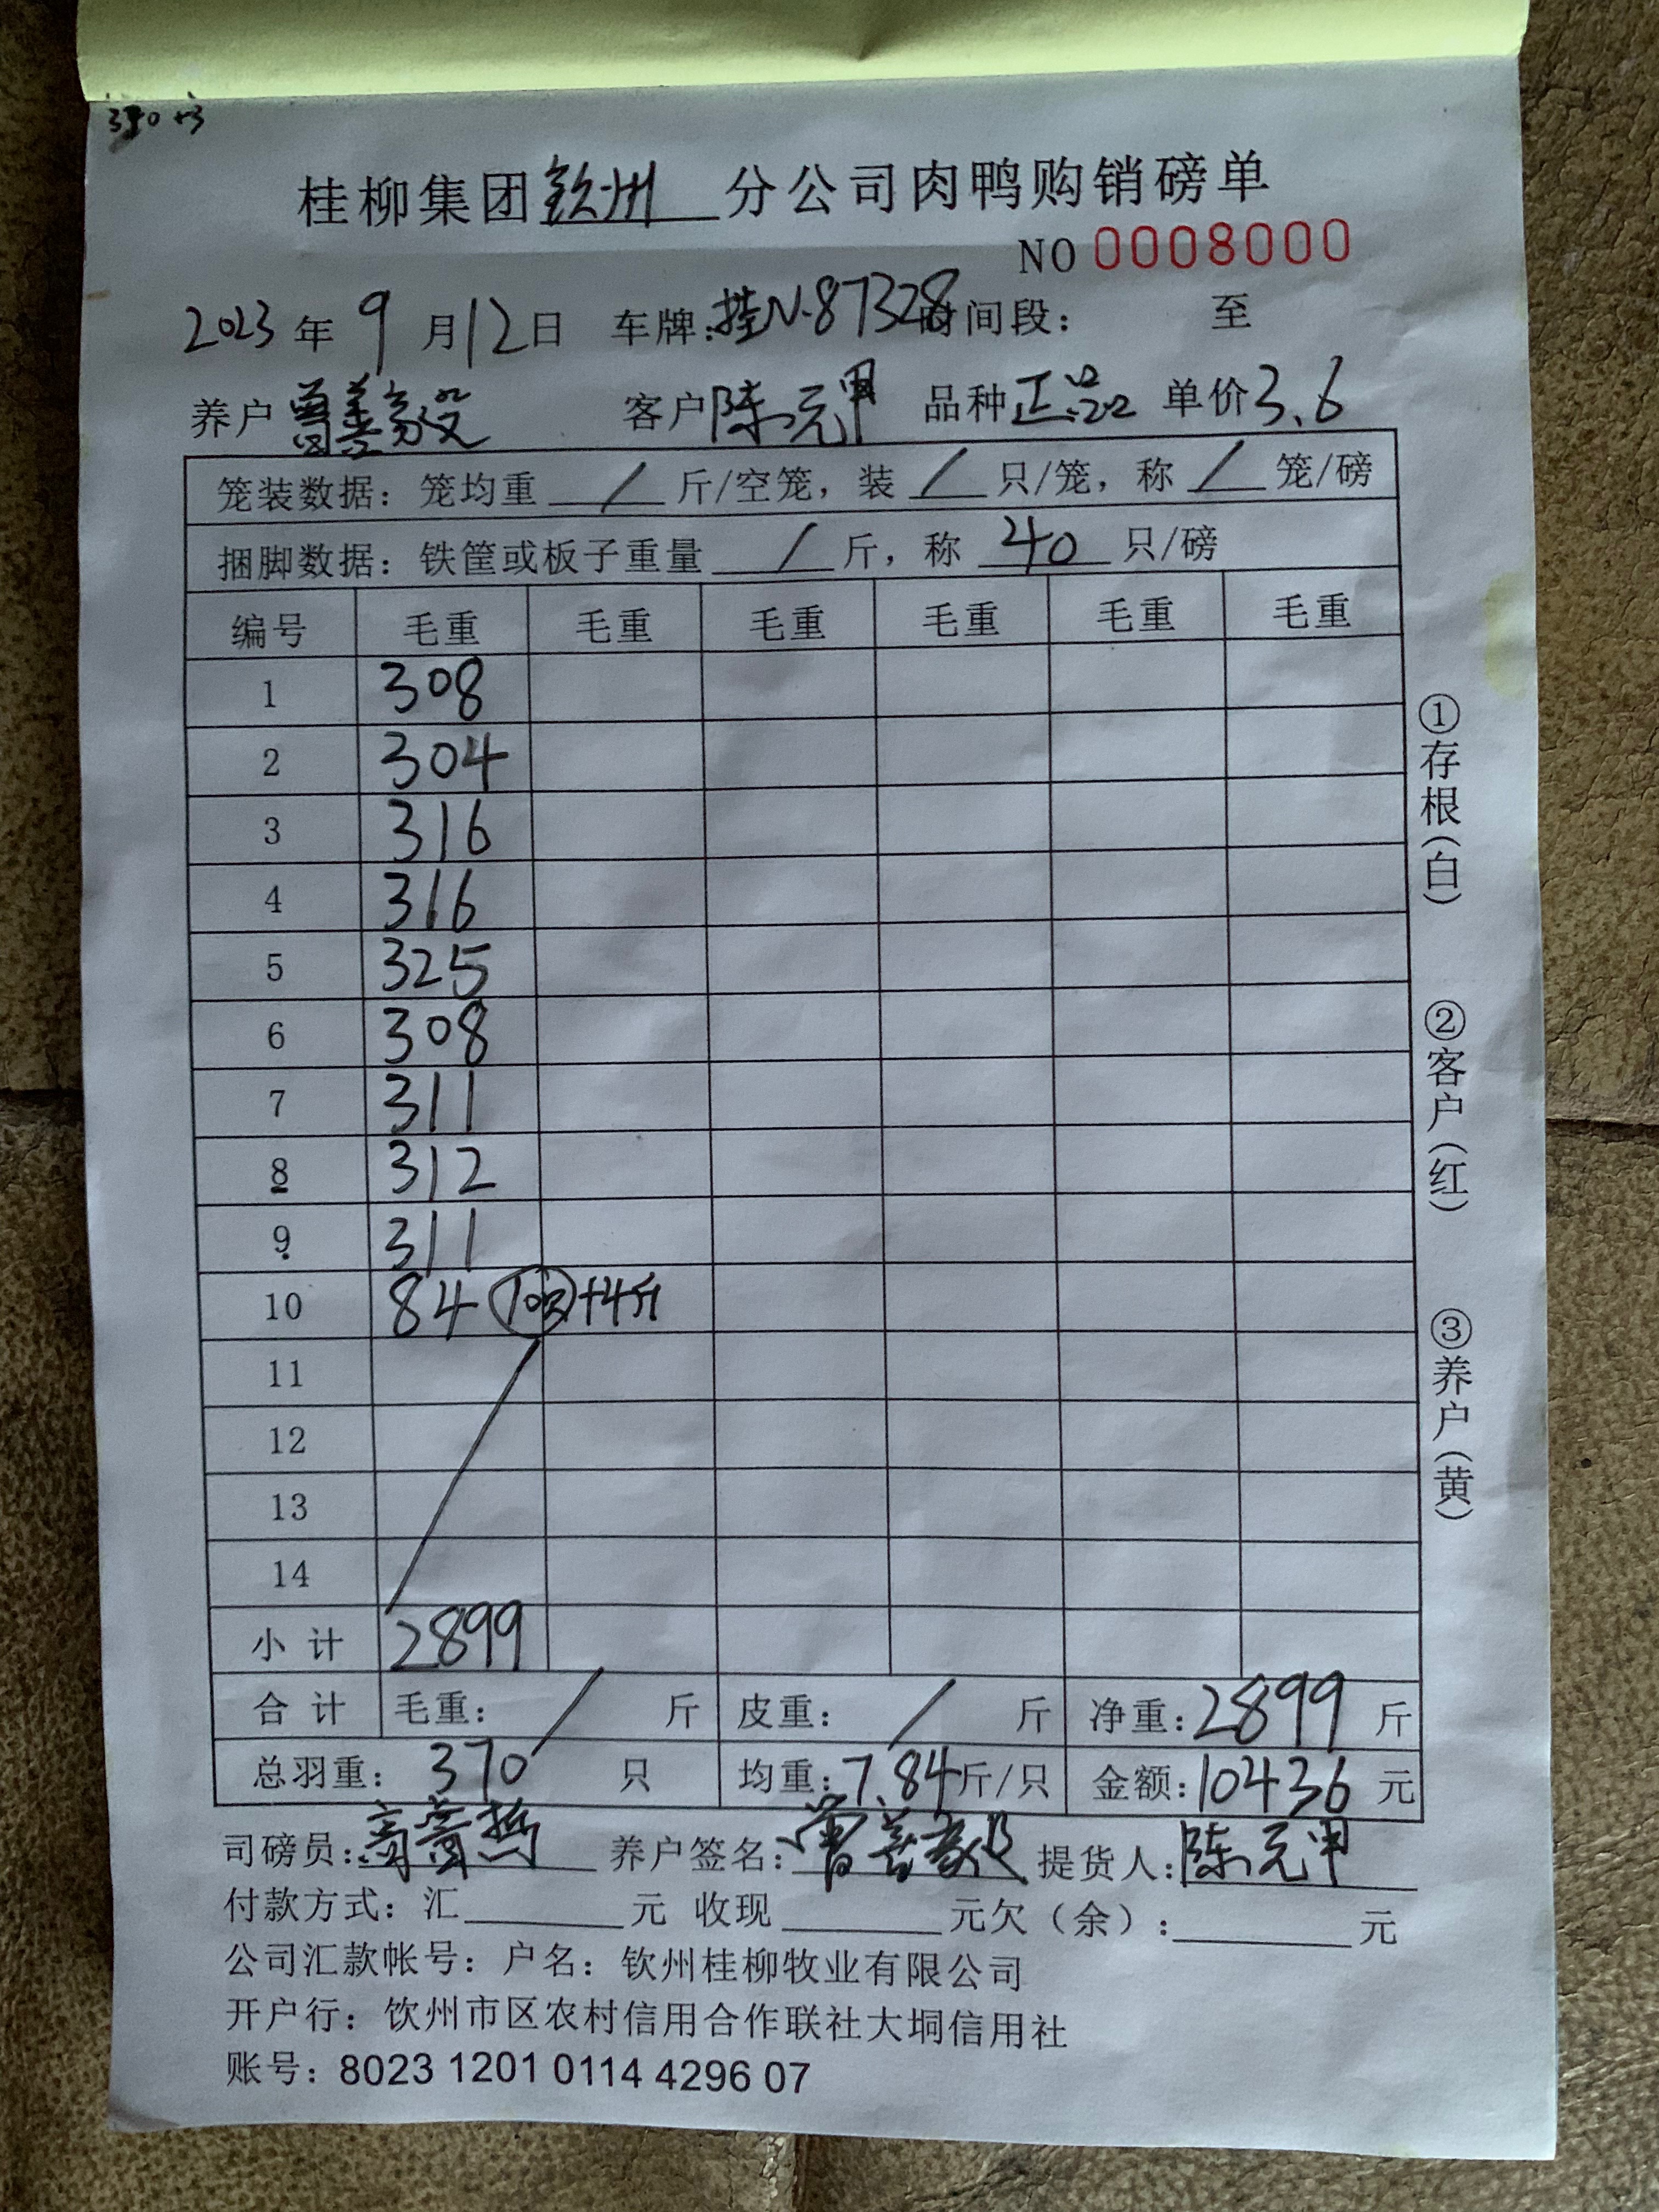 桂柳集团钦州分公司肉鸭购销磅单
NO 0008000
2023年9月12日 车牌:桂N.87328时间段: 至
养户曾善毅 客户陈元甲 品种正品 单价3.6
笼装数据:笼均重 / 斤/空笼,装 / 只/笼,称 / 笼/磅
捆脚数据:铁筐或板子重量 / 斤,称 40 只/磅
编号 毛重 毛重 毛重 毛重 毛重 毛重
1 308
2 304
3 316
4 316
5 325
6 308
7 311
8 312
9 311
10 84 10只+4斤
11
12
13
14
小计 2899
合计 毛重: / 斤 皮重: / 斤 净重:2899斤
总羽重:370只 均重:7.84斤/只 金额:10436元
司磅员: 养户签名:曾善毅 提货人:陈元甲
付款方式:汇 元 收现 元欠(余): 元
公司汇款帐号:户名:钦州桂柳牧业有限公司
开户行:钦州市区农村信用合作联社大垌信用社
账号:8023 1201 0114 4296 07
①存根(白)
②客户(红)
③养户(黄)